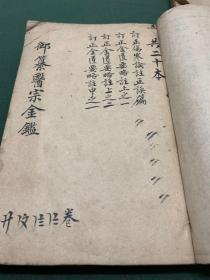 共二十本
訂正傷寒論註正誤篇
訂正金匱要略註上之一
訂正金匱要略註上之二
訂正金匱要略註中之一
御纂醫宗金鑑
卷